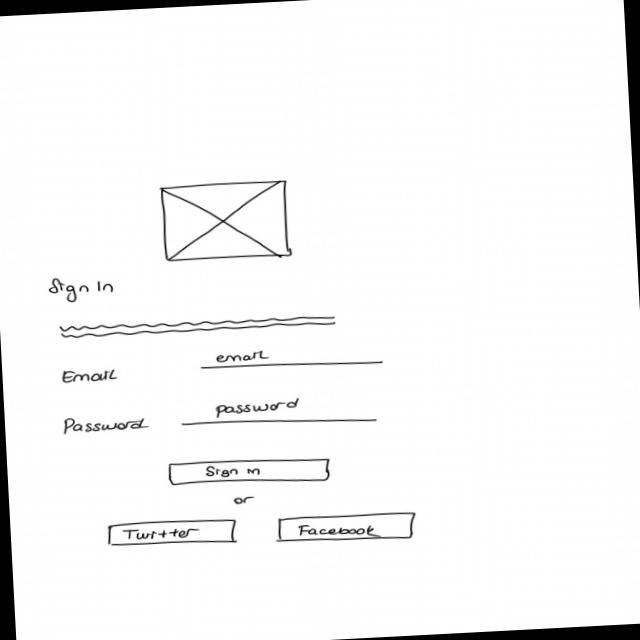 Sign In
email
Email
password
Password
Sign in
or
Twitter Facebook